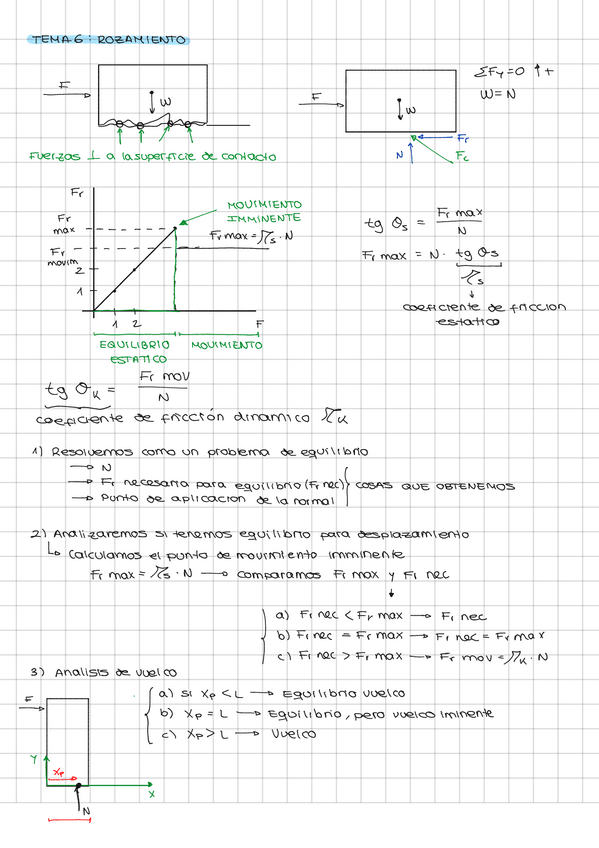 TEMA 6: ROZAMIENTO
F
W
Fuerzas ⊥ a la superficie de contacto
F
W
N
Fr
Fc
ΣFy=0 ↑+
W=N
Fr
Fr max
Fr movim
2
1
1 2
F
MOVIMIENTO IMMINENTE
Fr max = μs · N
EQUILIBRIO ESTATICO
MOVIMIENTO
tg θs = Fr max / N
Fr max = N · tg θs
μs
↓
coeficiente de friccion
estatico
tg θk = Fr mov / N
coeficiente de fricción dinamico μk
1) Resolvemos como un problema de equilibrio
→ N
→ Fr necesaria para equilibrio (Fr nec) } COSAS QUE OBTENEMOS
→ Punto de aplicacion de la normal
2) Analizaremos si tenemos equilibrio para desplazamiento
↳ Calculamos el punto de movimiento imminente
Fr max = μs · N → comparamos Fr max y Fr nec
↓
a) Fr nec < Fr max → Fr nec
b) Fr nec = Fr max → Fr nec = Fr max
c) Fr nec > Fr max → Fr mov = μk · N
3) Analisis de vuelco
a) si Xp < L → Equilibrio vuelco
b) Xp = L → Equilibrio, pero vuelco iminente
c) Xp > L → Vuelco
F
Y
Xp
X
N